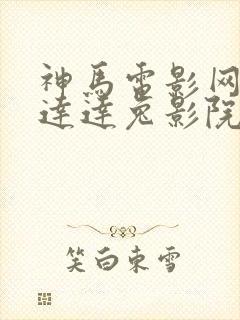 神马雷影网
达达兔影院
笑白東雪